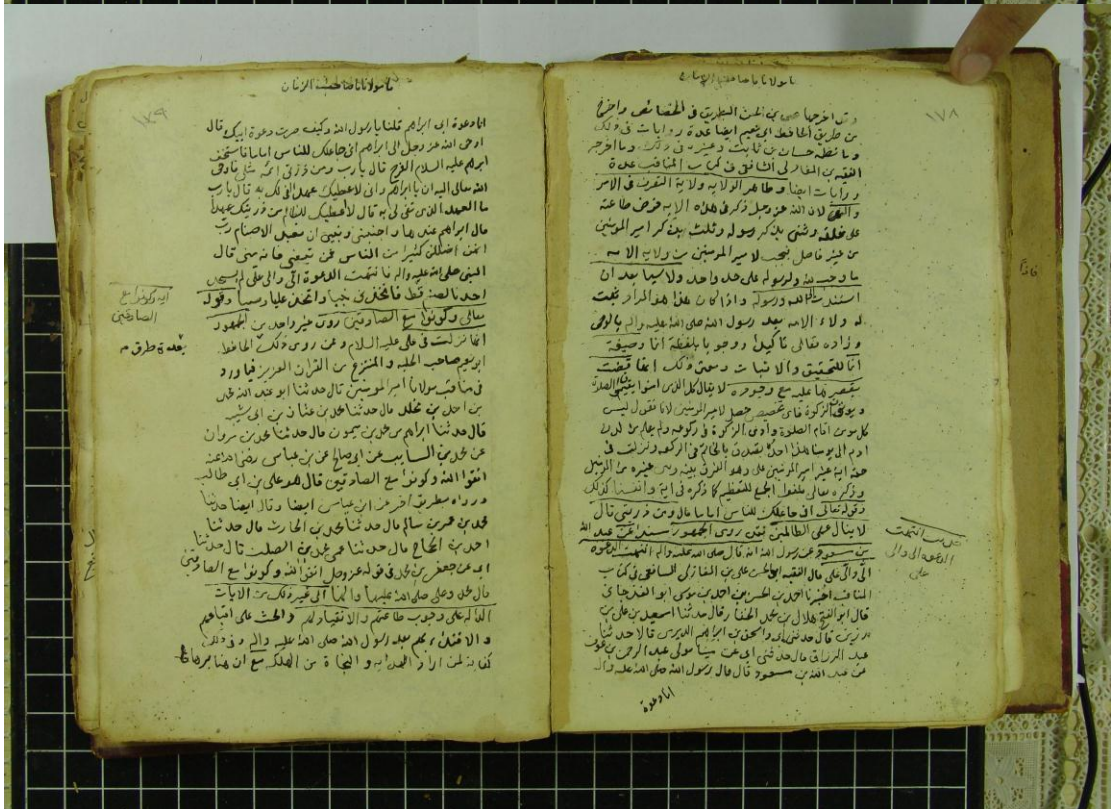 ١٧٨
وقد اخرجها يحيى بن الحسن البطريق في الخصائص واخرج
من طريق الحافظ ابي نعيم ايضا عدة روايات في ذلك
وما نظمه حسان بن ثابت وغيره في ذلك وما اخرجه
الفقيه بن المغازلي الشافعي في كتاب المناقب عدة
روايات ايضا وظاهر الولاية ولاية التصرف في الامر
والنهي لان الله عز وجل ذكر في هذه الاية فرض طاعته
على خلقه وثنى بذكر رسوله وثلث بذكر امير المومنين
من غير فاصل فيجب لامير المومنين من ولاية الامة
ما وجب لله ولرسوله على حد واحد ولا سيما بعد ان
اسندت الى الله ورسوله واذا كان هذا هو المراد ثبتت
له ولاء الامة بعد رسول الله صلى الله عليه واله بالوحي
وزاده تعالى تاكيدا ووجوبا بلفظة انما وصيغة
انما للتحقيق والاثبات
لا يقال كل الذين امنوا يقيمون الصلوة
ويوتون الزكوة فاي تخصيص حصل لامير المومنين لانا نقول ليس
كل مومن اقام الصلوة وادى الزكوة في ركوعه ولم نجد من لدن
ادم الى يومنا هذا احدا تصدق بالخاتم في الركعة ونزلت في
حقه اية غير امير المومنين على وهو الفرق بينه وبين غيره من
وذكره تعالى بلفظ الجمع للتعظيم كما ذكره في اية وانفسنا كذلك
وقوله تعالى اني جاعلك للناس اماما قال ومن ذريتي قال
لا ينال عهدي الظالمين فقد روى الجمهور مسندا عن عبد الله
بن مسعود عن رسول الله انه قال صلى الله عليه واله انتهت الدعوة
الي والى علي قال الفقيه ابو الحسن علي بن المغازلي الشافعي في كتاب
المناقب اخبرنا احمد بن الحسن بن احمد بن موسى ابو الغندجاني
قال ابو الفتح هلال بن محمد الحفار قال حدثنا اسمعيل بن علي بن
رزين قال حدثني ابي واسحق بن ابراهيم الدبري قالا حدثنا
عبد الرزاق قال حدثني ابي عن مينا مولى عبد الرحمن بن عوف
عن عبد الله بن مسعود قال قال رسول الله صلى الله عليه واله
انا دعوة
انتهت
الدعوة الي والى
علي
١٧٩
انا دعوة ابي ابراهيم قلنا يا رسول الله وكيف صرت دعوة ابيك قال
اوحى الله عز وجل الى ابراهيم اني جاعلك للناس اماما فاستخف
ابرهيم عليه السلام الفرح قال يا رب ومن ذريتي ائمة مثلي فاوحى
الله تعالى اليه ان يا ابراهيم اني لا اعطيك عهدا لا افي لك به قال يا رب
ما العهد الذي لا تفي لي به قال لا اعطيك للظالم من ذريتك عهدا
قال ابراهيم عندها واجنبني وبني ان نعبد الاصنام رب
انهن اضللن كثيرا من الناس فمن تبعني فانه مني قال
النبي صلى الله عليه واله فانتهت الدعوة الي والى علي لم يسجد
احدنا لصنم قط فاتخذني نبيا واتخذ عليا وصيا وقوله
تعالى وكونوا مع الصادقين روى غير واحد من الجمهور
انها نزلت في علي عليه السلام وممن روى ذلك الحافظ
ابو نعيم صاحب الحلية والمنتزع من القران العزيز فيما ورد
في مناقب مولانا امير المومنين قال حدثنا ابو عبد الله محمد
بن احمد بن مخلد قال حدثنا محمد بن عثمان بن ابي شيبه
قال حدثنا ابراهيم بن محمد بن ميمون قال حدثنا محمد بن مروان
عن محمد بن السايب عن ابي صالح عن بن عباس رضي الله عنه
اتقوا الله وكونوا مع الصادقين قال هو علي بن ابي طالب
ورواه بطريق اخر عن ابن عباس ايضا وقال ايضا حدثنا
محمد بن عمر بن سالم قال حدثنا محمد بن الحارث قال حدثنا
احمد بن الحجاج قال حدثنا محمد بن الصلت قال حدثنا
ابي عن جعفر بن محمد في قوله عز وجل اتقوا الله وكونوا مع الصادقين
قال محمد وعلي صلى الله عليهما والهما الى غير ذلك من الايات
الدالة على وجوب طاعتهم والانقياد لهم والحث على اتباعهم
والاقتداء بهم بعد رسول الله صلى الله عليه واله وفي ذلك
كفاية لمن اراد الهداية والنجاة من الهلكة مع ان
اية وكونوا مع
الصادقين
بعدة طرق